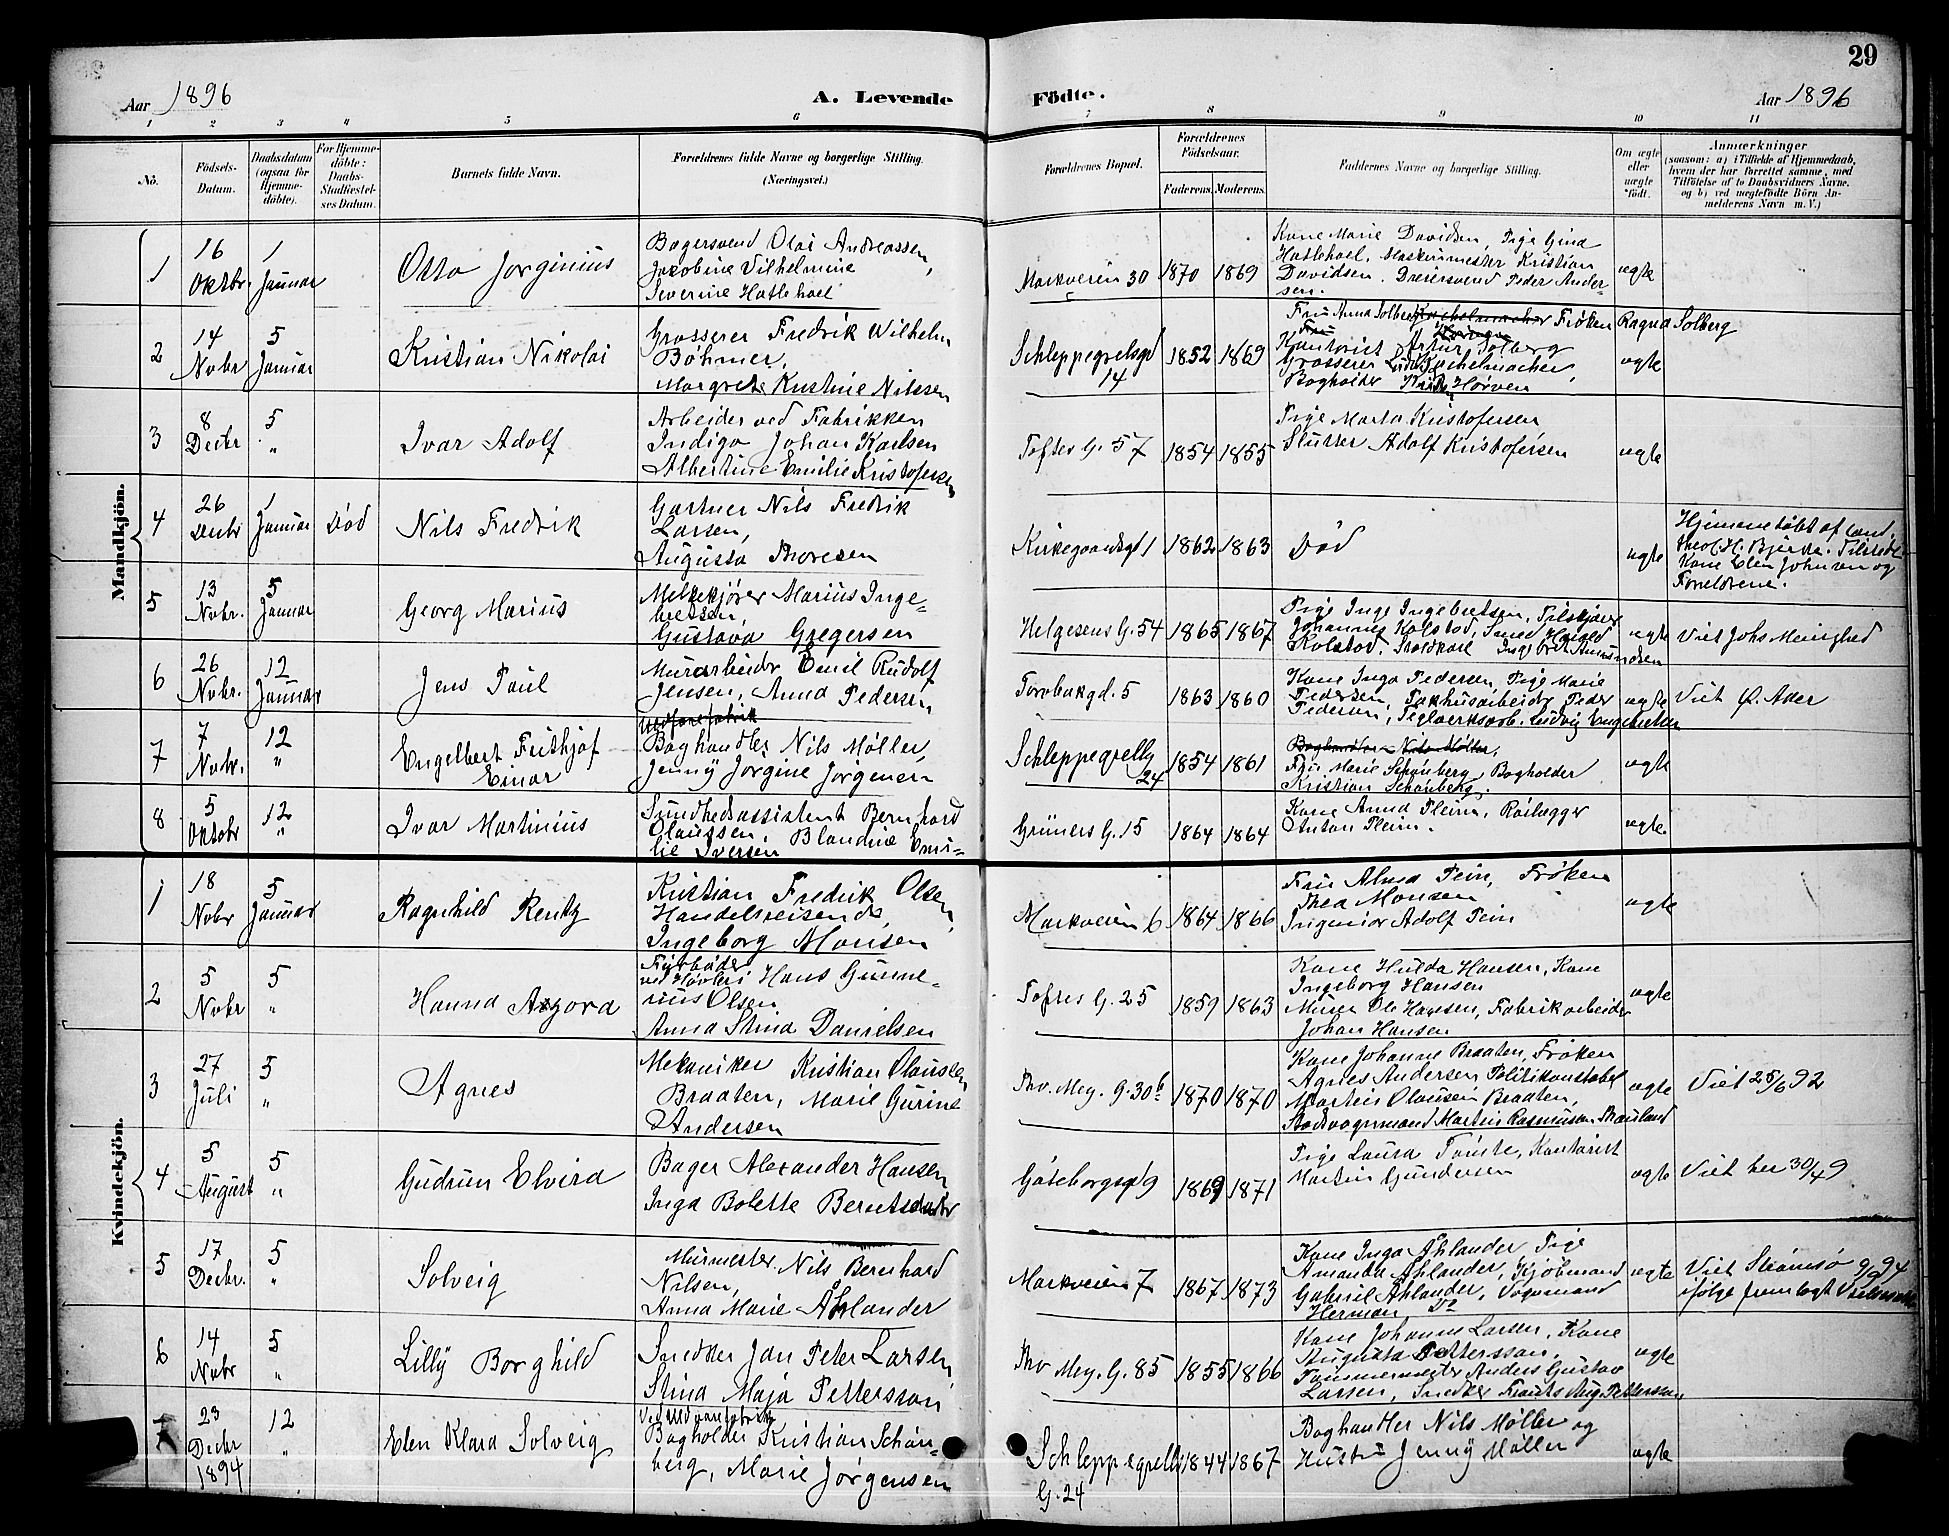 29
Aar 1896
A. Levende Födte.
Aar 1896
1 2 3 4 5 6 7 8 9 10 11
No.
Födsels-Datum.
Daabsdatum (ogsaa for Hjemme-döbte).
For Hjemme-döbte: Daabs-Stadfæstel-ses Datum.
Barnets fulde Navn.
Forældrenes fulde Navne og borgerlige Stilling.
(Næringsvei.)
Forældrenes Bopæl.
Forældrenes Födselsaar.
Faderens. Moderens.
Faddernes Navne og borgerlige Stilling.
Om ægte eller uægte födt.
Anmærkninger
(saasom: a) i Tilfælde af Hjemmedaab,
hvem der har forrettet samme, med
Tilföielse af to Daabsvidners Navne.
og b) ved uægtefödte Börn An-
melderens Navn m. V.)
Mandkjön.
1
16 Oktbr.
1 Januar
Otto Jorginius
Bagersvend Olai Andreassen,
Jacobine Vilhelmine
Severine Hatlehoel
Markveien 30
1870 1869
Kone Marie Davidsen, Pige Gina
Hatlehoel, Maskinmester Kristian
Davidsen, Dreiersvend Peder Ander-
sen.
ægte
2
14 Novbr
5 Januar
Kristian Nikolai
Grosserer Fredrik Wilhelm
Böhmer,
Margrete Kristine Nilssen
Schleppegrelsgd
14
1852 1869
Fru Anna Solberg Frøken Ragna Solberg
Kontorist Artur Solberg
Grosserer
Bogholder Hörven
ægte
3
8 Decbr
5 "
Ivar Adolf
Arbeider ved Fabrikken
Indigo Johan Karlsen
Albertine Emilie Kristofersen
Toftes G. 57
1854 1855
Pige Marta Kristofersen,
Slutter Adolf Kristofersen
ægte
4
26 Decbr
1 Januar
Död
Nils Fredrik
Gartner Nils Fredrik
Larsen,
Augusta Thoresen
Kirkegaardsgd 1
1862 1863
Död
ægte
Hjemmedöbt af Cand.
theol. H. Bjerke. Tilstede
Kone Elen Johnsen og
Forældrene.
5
13 Novbr.
5 Januar
Georg Marius
Melkekjörer Marius Inge-
bretsen,
Gustava Gregersen
Helgesens G. 54
1865 1867
Pige Inga Ingebretsen,
Johannes Kolstad, Smed
Kolstad. Ingebret Amundsen
ægte
Viet Johs Menighed
6
26 Novbr.
12 Januar
Jens Paul
Murarbeider Emil Rudolf
Jensen, Anna Pedersen
Torvbakgd. 5
1863 1860
Kone Inga Pedersen, Pige Marie
Pedersen, Pakhusarbeider Peder
Pedersen, Teglverksarb. Ludvig Engebretsen
ægte
Viet Ø. Aker
7
7 Novbr.
12 "
Engelbert Frithjof
Einar
Boghandler Nils Møller,
Jenny Jörgine Jörgensen
Schleppegrells
24
1854 1861
Boghandler Nils Møller,
Fru Marie Schønberg, Bogholder
Kristian Schønberg.
ægte
8
5 Oktobr
12 "
Ivar Martinius
Sundhedsassistent Bernhard
Olaussen, Blandine Emi-
lie Iversen
Grüners G. 15
1864 1864
Kone Anna Fleim, Rörlægger
Anton Fleim.
ægte.
Kvindekjön.
1
18 Novbr
5 Januar
Ragnhild Rentz
Kristian Fredrik Olsen,
Handelsreisende,
Ingeborg Monsen
Markveien 6
1864 1866
Fru Alma Pein, Frøken
Thea Monsen
Ingeniör Adolf Pein
ægte
2
5 Novbr
5 "
Hanna Azora
Fyrböder
ved Høvleri Hans Gunne-
rius Olsen
Anna Stina Danielsen
Toftes G. 25
1859 1863
Kone Hulda Hansen, Kone
Ingeborg Hansen
Murer Ole Hansen, Fabrikarbeider
Johan Hansen
ægte
3
27 Juli
5 "
Agnes
Mekaniker Kristian Olaussen
Braaten, Marie Gurine
Andersen
Thv. Mey. G. 30 b
1870 1870
Kone Johanne Braaten, Frøken
Agnes Andersen Politikonstabel
Martin Olausen Braaten,
Martin Rasmussen
ægte
Viet 25/6 92
4
5 August
5 "
Gudrun Elvira
Bager Alexander Hansen
Inga Bolette Berntsdatr
Göteborgsgd 9
1869 1871
Pige Laura Tomte, Kontorist
Martin Gundersen
ægte
Viet her 30/4 9
5
17 Decbr.
5 "
Solveig
Murmester Nils Bernhard
Nilsen,
Anna Marie Ahlander
Markveien 7
1867 1873
Kone Inga Ahlander Pige
Amanda Ahlander, Kjøbmand
Gabriel Ahlander, Vognmand
Herman Do
ægte
Viet Strömsö 9/9 94
ifølge fremlagt
6
14 Novbr
5 "
Lilly Borghild
Snedker Jan Peter Larsen
Stina Maja Pettersson
Thv Mey. G. 85
1855 1866
Kone Johanne Larsen, Kone
Augusta Pettersson,
Tømmermester Anders Gustav
Larsen, Snedker Frants Aug. Pettersson
ægte
7
23 Decbr
1894
12 "
Elen Klara Solveig
Bogholder Kristian Schön-
berg, Marie Jörgensen
Schleppegrells
G. 24
1844 1867
Boghandler Nils Møller og
Hustru Jenny Møller
ægte